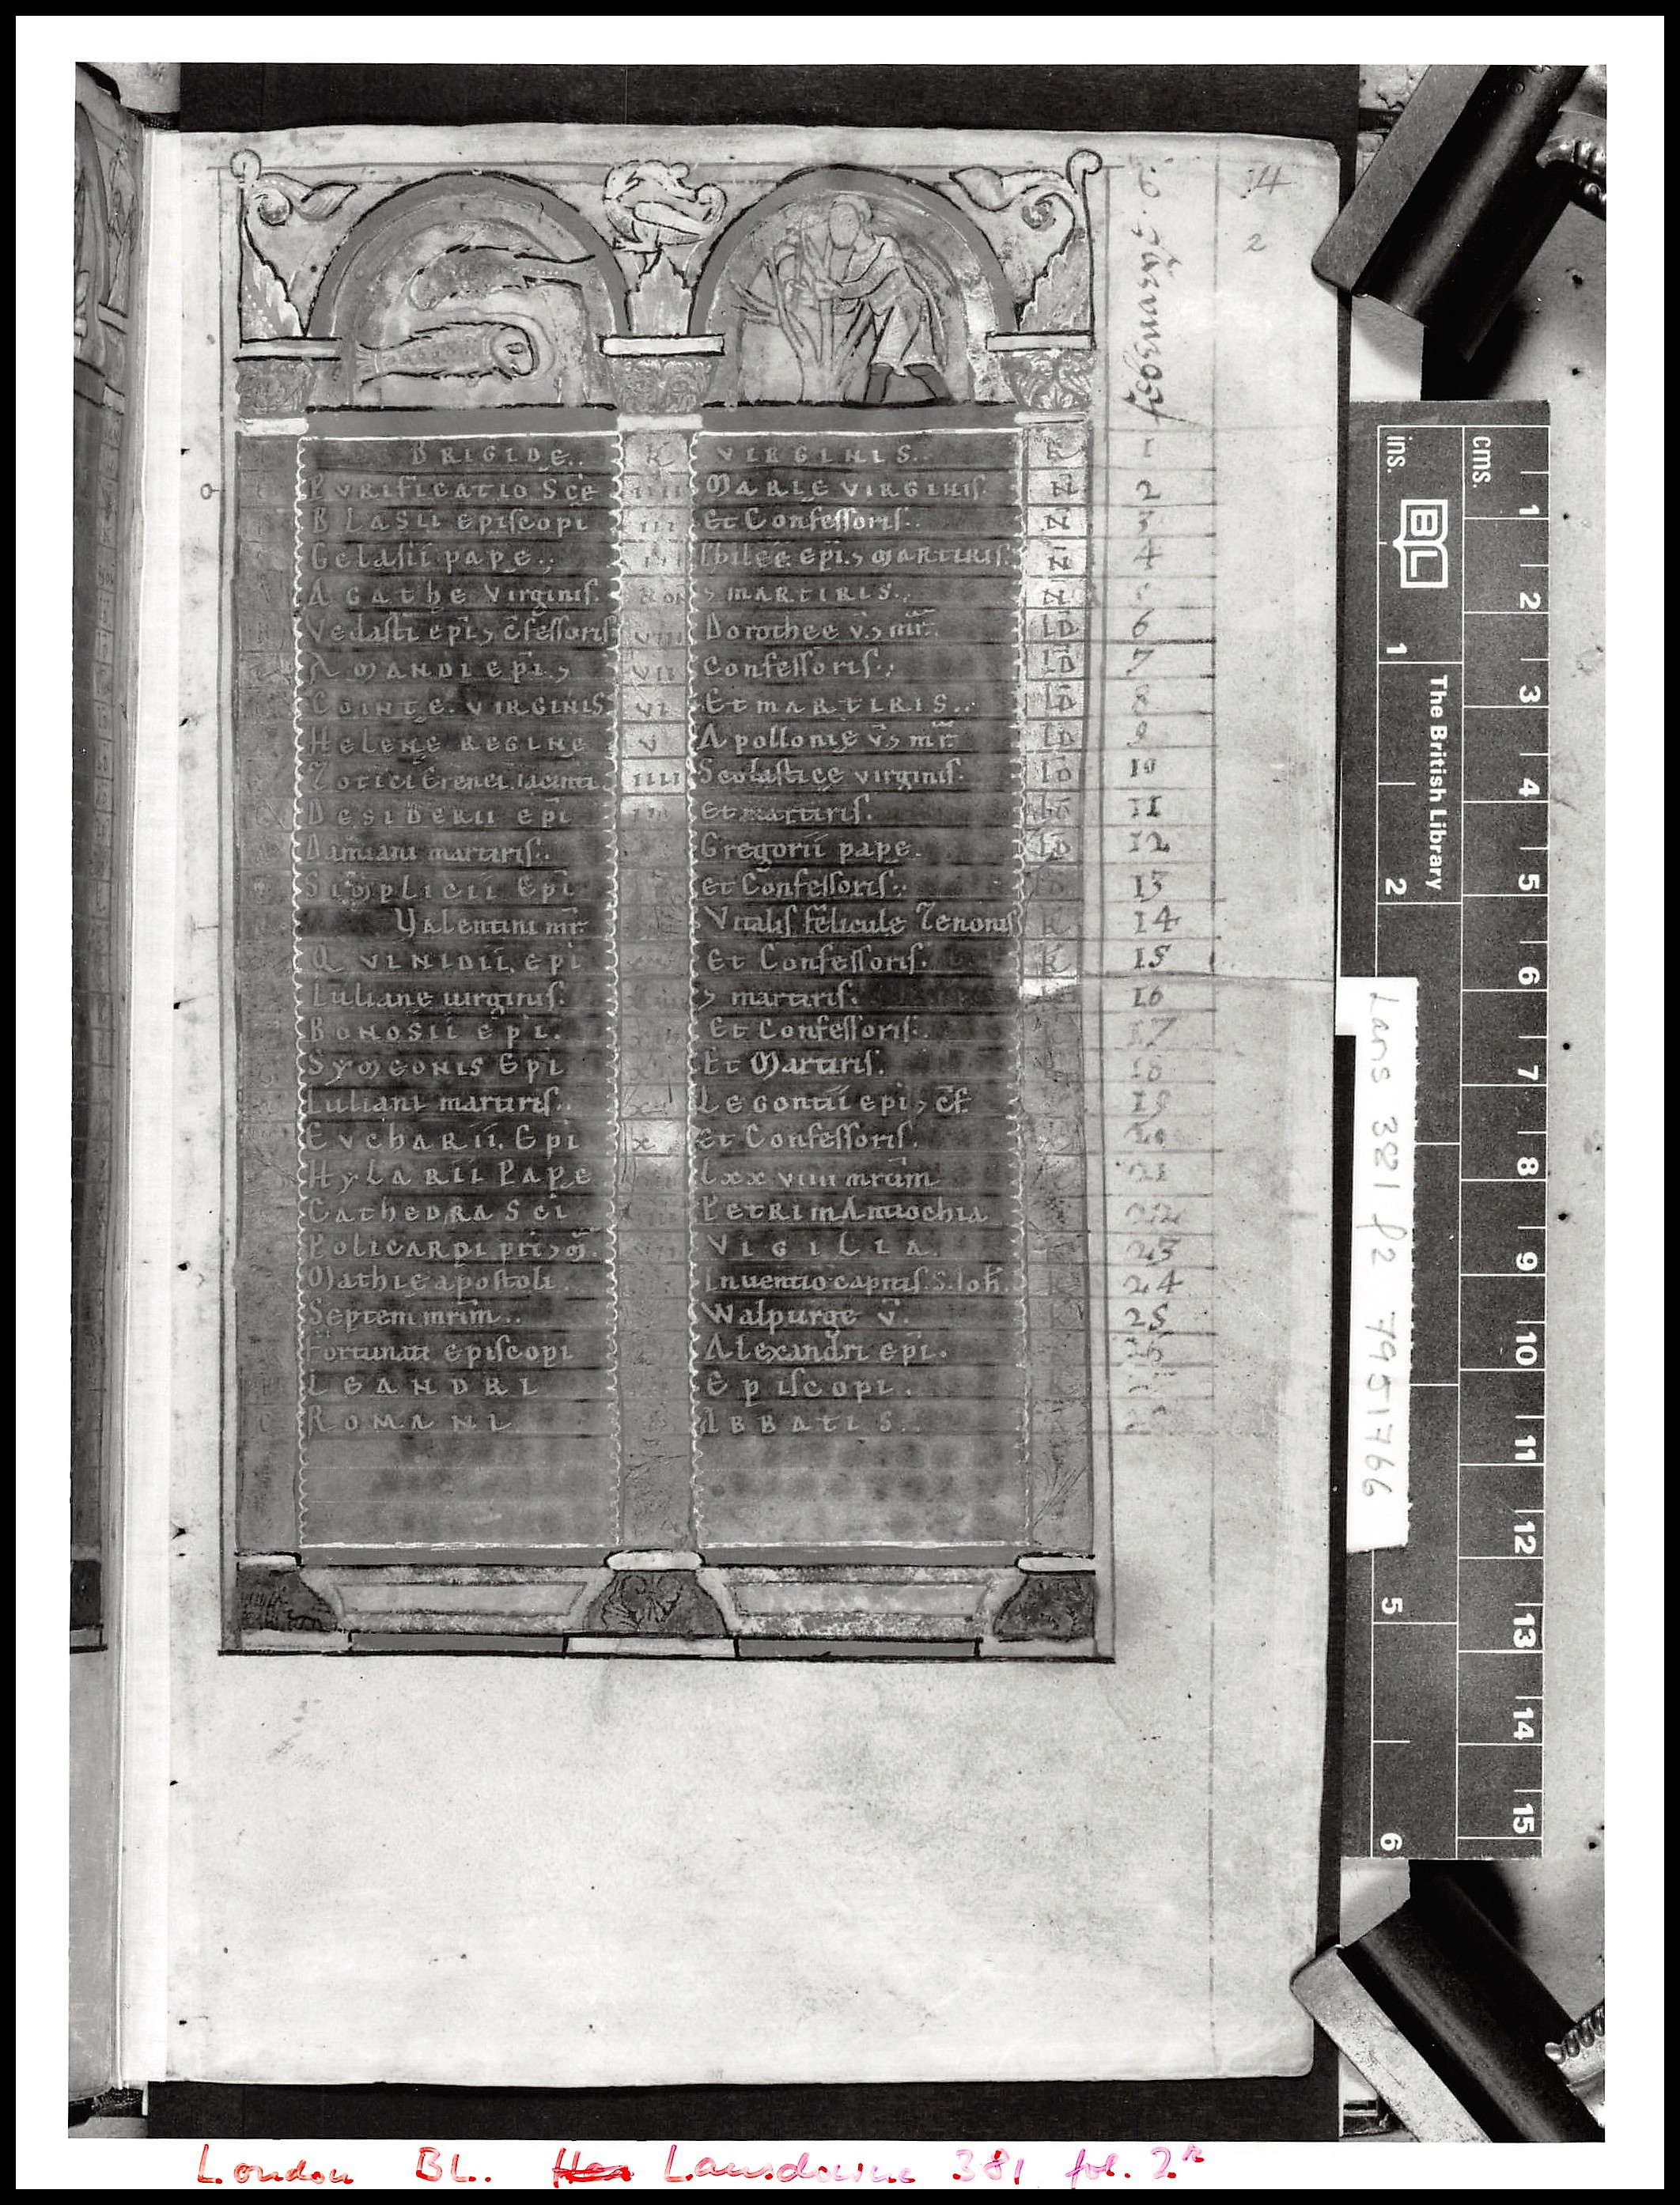 34
2
BRIGIDE.. K VIRGINIS.. K 1
PVRIFICATIO Scē IIII MARIE VIRGINIS. N 2
BLASII episcopi III Et Confessoris.. N 3
Gelasii pape.. II Philee epi, MARTIRIS. N 4
AGAThE Virginis. NON , MARTIRIS.. N
Vedasti epi, cfessoris VIII Dorothee v, mr. ID 6
AMANDI epi, VII confessoris., ID 7
COINTE. VIRGINIS VI Et MARTIRIS.. ID 8
HELENE REGINE V Apollonie v, mr. ID 9
Zotici Erenei. iacinti IIII Scolastice virginis. ID 10
DESIDERII epi III et martiris. 11
Damiani martiris.. Gregorii pape. ID 12
SIMPLICII Epi et Confessoris.. 13
Valentini mr Vitalis felicule Zenonis K 14
QVINIDII. epi Et Confessoris. K 15
Iuliane uirginis. , martiris. 16
BONOSII epi. Et Confessoris. 17
SYMEONIS Epi Et Martiris. 18
Iuliani martiris.. Legontii epi, cf. 19
EVChARII. Epi X et Confessoris.
HYLARII Pape Lxx viiii mrum 21
CAThEDRA Sci PETRI in Antiochia 22
POLICARPI pri, m. VII VIGILIA. 23
Mathie apostoli. Inuentio capitis. S. Ioh. 24
Septem mrm.. Walpurge v. 25
Fortunati episcopi Alexandri epi. 26
LEANDRI Episcopi.
ROMANI ABBATIS..
ins. cms.
1 2 3 4 5 6 7 8 9 10 11 12 13 14 15
1 2 5 6
BL
The British Library
Lans 381 f2 7951766
London BL. Lansdowne 381 fol. 2r